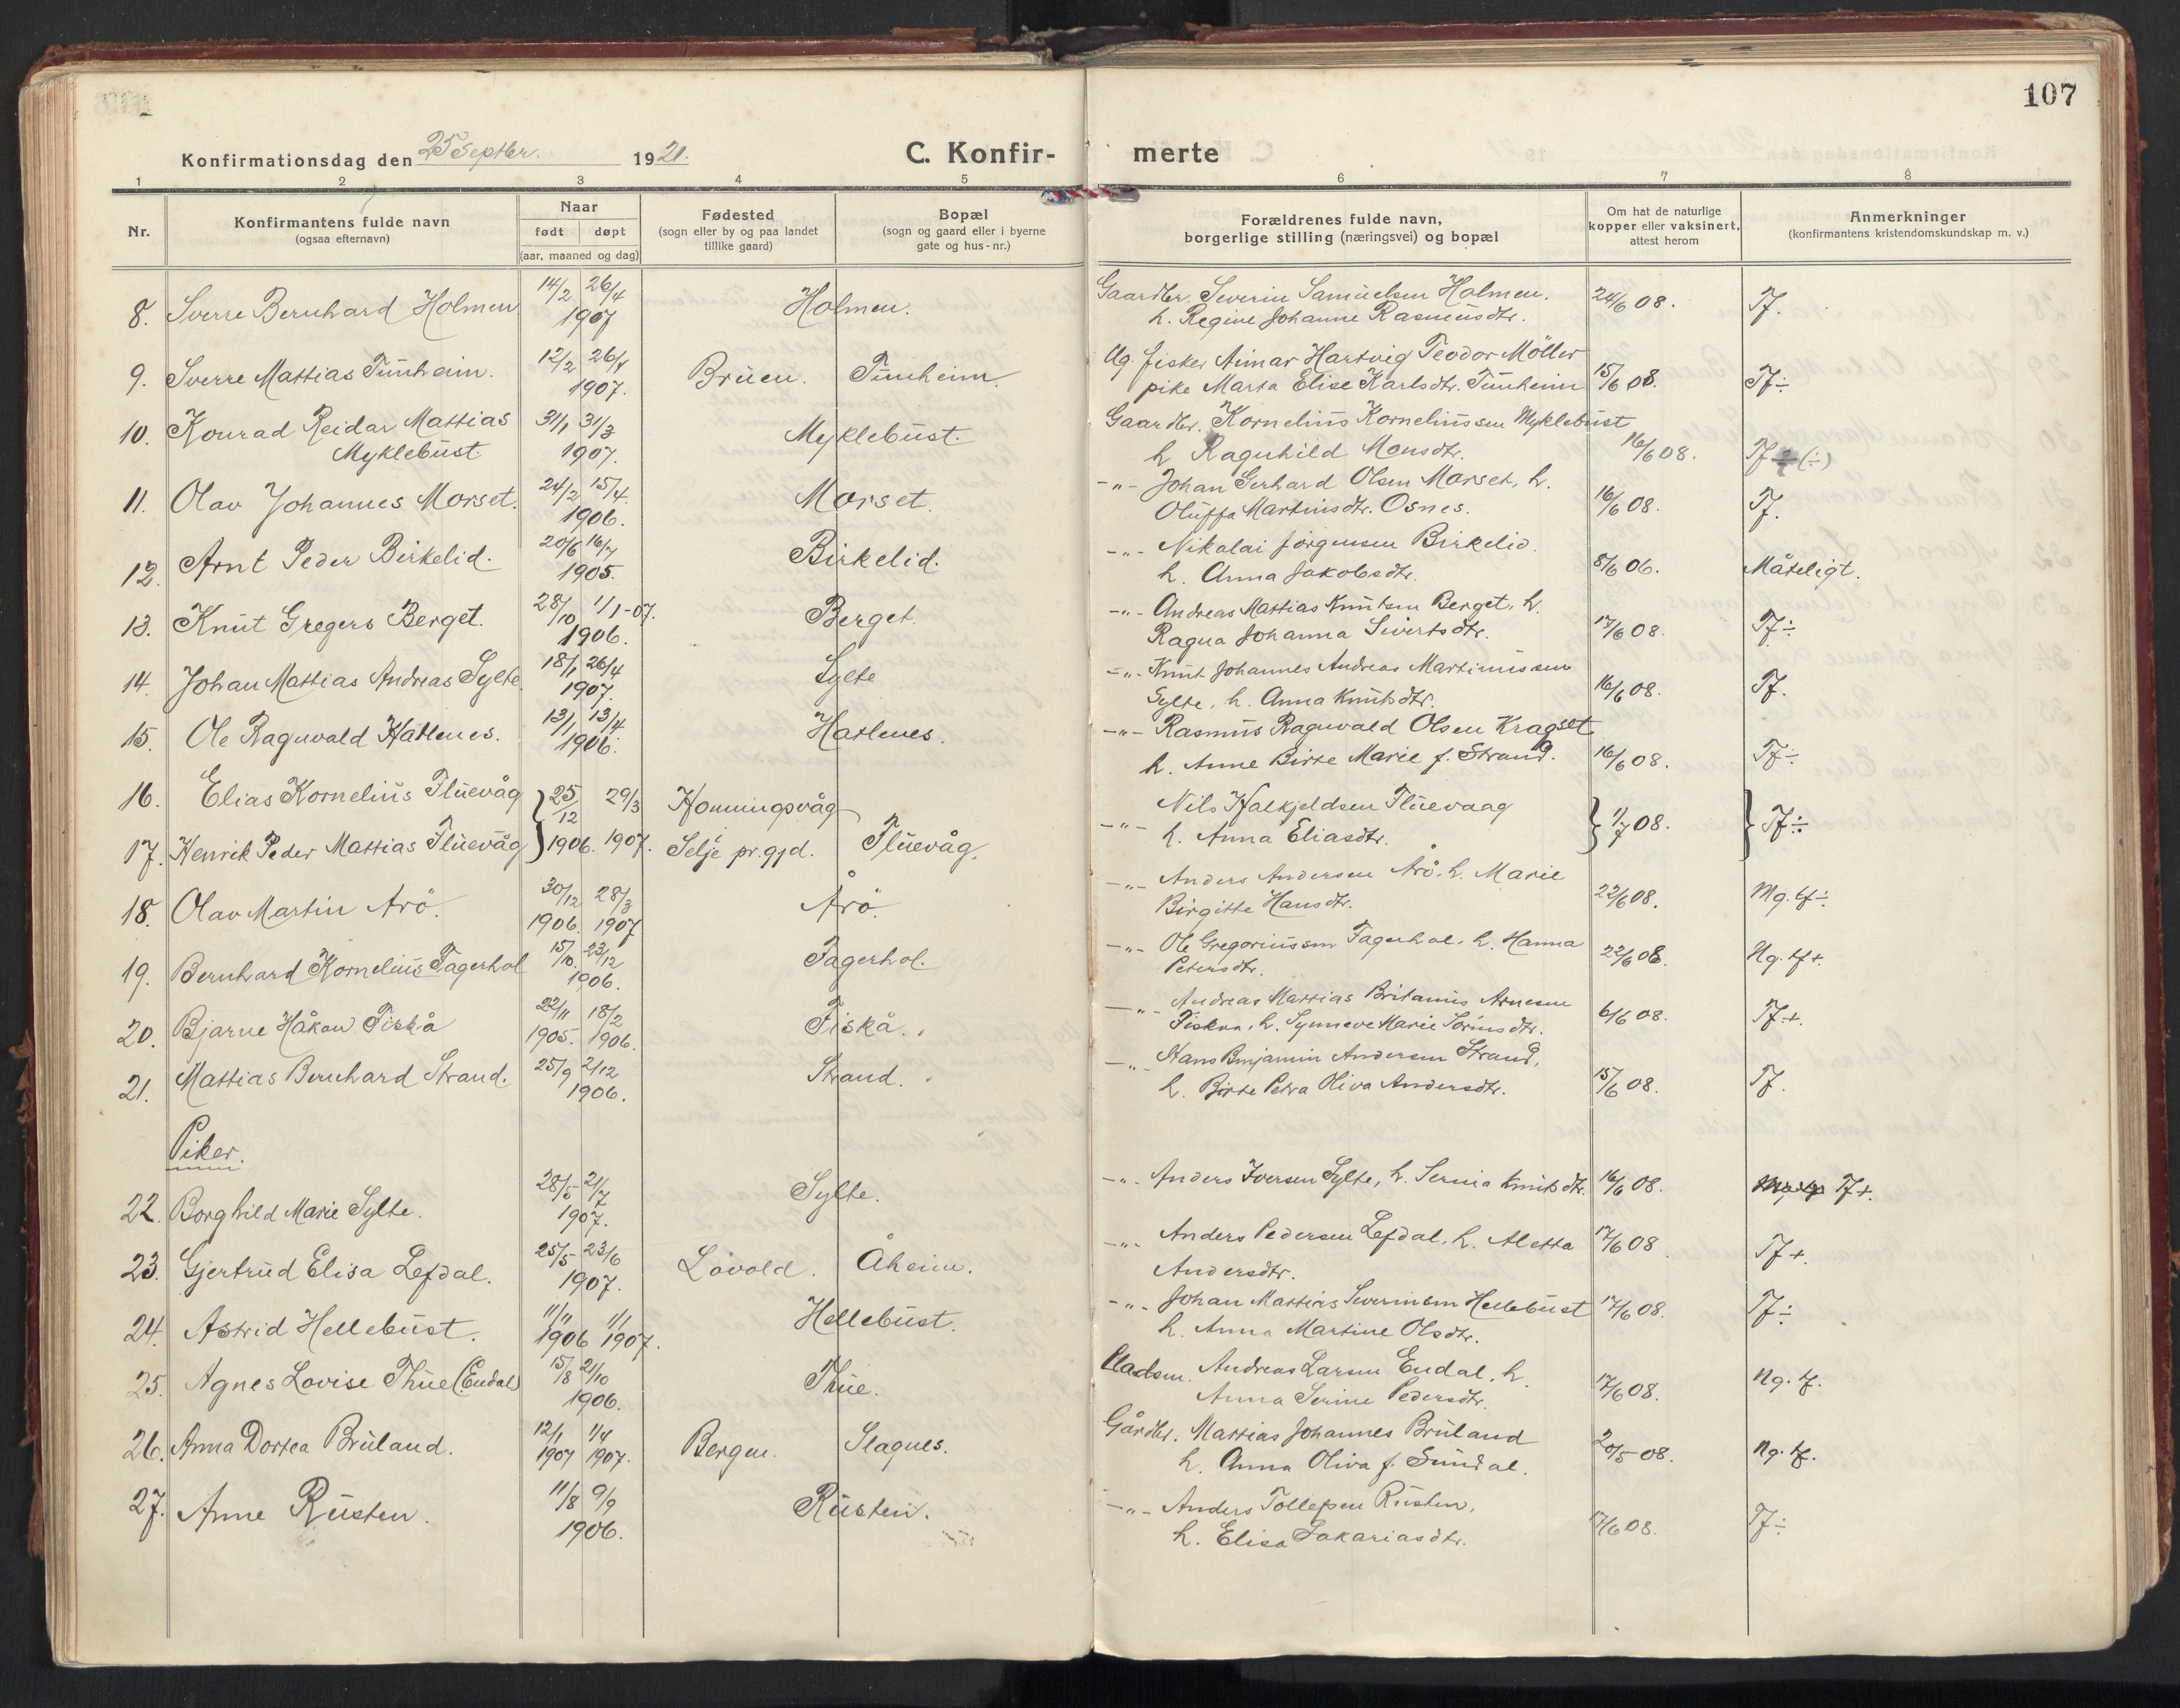 107
Konfirmationsdag den 25 Septbr. 1921.
C. Konfir- merte
1 2 3 4 5 6 7 8
Nr.
Konfirmantens fulde navn
(ogsaa efternavn)
Naar
født døpt
(aar, maaned og dag)
Fødested
(sogn eller by og paa landet
tillike gaard)
Bopæl
(sogn og gaard eller i byerne
gate og hus-nr.)
Forældrenes fulde navn,
borgerlige stilling (næringsvei) og bopæl
Om hat de naturlige
kopper eller vaksinert,
attest herom
Anmerkninger
(konfirmantens kristendomskundskap m. v.)
8. Sverre Bernhard Holmen 14/2 26/4 1907 Holmen.
Gaardbr. Severin Samuelsen Holmen.
h. Regine Johanne Rasmusdtr. 24/6 08. Tf.
9. Sverre Mattias Tunheim. 12/2 26/4 1907. Bruen. Tunheim.
Ug. fisker Aimar Hartvig Teodor Möller
pike Marta Elise Karlsdtr. Tunheim 15/6 08. Tf ÷
10. Konrad Reidar Mattias
Myklebust. 31/1 31/3 1907. Myklebust.
Gaardbr. Kornelius Korneliussen Myklebust
h. Ragnhild Monsdtr. 16/6 08. Tf (÷)
11. Olav Johannes Morset. 24/2 15/4 1906. Morset.
-"- Johan Gerhard Olsen Morset, h.
Oluffa Martinsdtr. Osnes. 16/6 08. Tf.
12. Arnt Peder Birkelid. 20/6 16/7 1905. Birkelid.
-"- Nikolai Jörgensen Birkelid.
h. Anna Jakobsdtr. 8/6 06. Måteligt.
13. Knut Gregers Berget. 28/10 1/1-07. 1906. Berget.
-"- Andreas Mattias Knutsen Berget, h.
Ragna Johanna Sivertsdtr. 17/6 08. Tf ÷
14. Johan Mattias Andreas Sylte. 18/1 26/4 1907. Sylte
-"- Knut Johannes Andreas Martinussen
Sylte, h. Anna Knutsdtr. 16/6 08. Tf.
15. Ole Ragnvald Hatlenes. 13/1 13/4 1906. Hatlenes.
-"- Rasmus Ragnvald Olsen Kragset
h. Anne Birte Marie f. Strand. 16/6 08. Tf ÷
16. Elias Kornelius Fluevåg } 25/12 29/3 Honningsvåg
17. Henrik Peder Mattias Fluevåg } 1906. 1907. Selje pr.gjd. Fluevåg.
-"- Nils Halkjeldsen Fluevaag
h. Anna Eliasdtr. } 1/7 08. } Tf ÷
18. Olav Martin Arö. 30/12 28/3 1906. 1907 Årö.
-"- Anders Andersen Årö. h. Marie
Birgitte Hansdtr. 22/6 08. Mg. tf ÷
19. Bernhard Kornelius Fagerhol 15/10. 23/12 1906. Fagerhol.
-"- Ole Gregoriussen Fagerhol. h. Hanna
Petersdtr. 22/6 08. Ng. tf +.
20. Bjarne Håkon Fiskå 22/11 18/2 1905. 1906. Fiskå.
-"- Andreas Mattias Britanus Arnesen
Fiskaa, h. Synneve Marie Sörinsdtr. 6/6 08. Tf +.
21. Mattias Bernhard Strand. 25/9 2/12 1906. Strand.
-"- Hans Benjamin Andersen Strand,
h. Birte Petra Oliva Andersdtr. 15/6 08. Tf.
Piker.
22. Borghild Marie Sylte. 28/5 21/7 1907. Sylte.
-"- Anders Iversen Sylte, h. Serina Knutsdtr. 16/6 08. Tf +.
23. Gjertrud Elisa Lefdal. 25/5 23/6 1907. Lövold. Åheim.
-"- Anders Pedersen Lefdal. h. Aletta
Andersdtr. 17/6 08. Tf +.
24. Astrid Hellebust. 11/11 1/1 1906 1907. Hellebust.
-"- Johan Mattias Severinsen Hellebust
h. Anna Martine Olsdtr. 17/6 08. Tf ÷
25. Agnes Lovise Thue (Endal) 15/8 21/10 1906. Thue.
Pladsm. Andreas Larsen Endal, h.
Anna Serine Pedersdtr. 17/6 08. Ng. tf.
26. Anna Dortea Bruland. 12/1 1/4 1907 1907. Bergen. Slagnes.
Gårdbr. Mattias Johannes Bruland
h. Anna Oliva f. Sundal. 20/5-08. Ng. tf.
27. Anne Rusten. 11/8 9/9 1906. Rusten.
-"- Anders Tollefsen Rusten,
h. Elisa Sakariasdtr. 17/6 08. Tf ÷